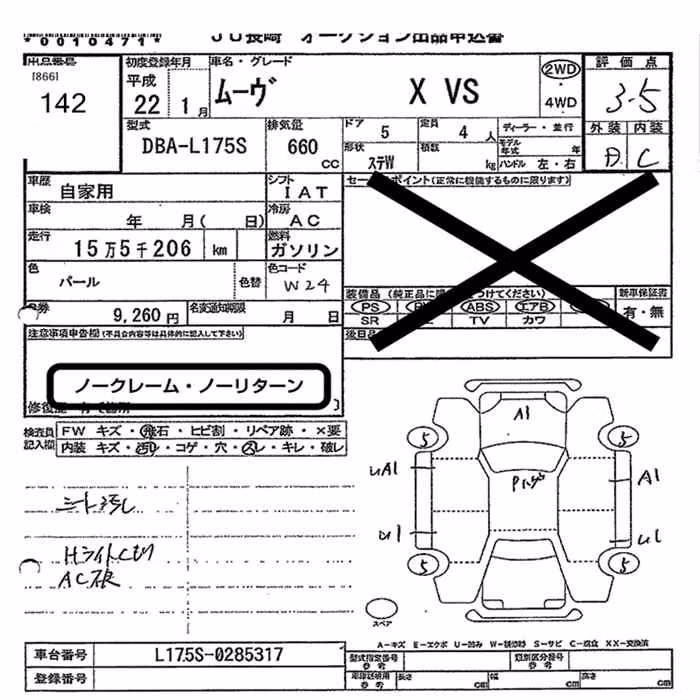 *0010471*
JU長崎 オークション出品申込書
出品番号
[866]
142
初度登録年月
平成
22 1月
車名・グレード
ムーヴ X VS
2WD
・
4WD
評価点
3.5
外装 内装
C
型式
DBA-L175S
排気量
660
CC
ドア 5
定員 4人
ディーラー・並行
モデル年式 年
形状 ステW
積数 kg
ハンドル 左・右
車歴 自家用
シフト IAT
車検 年 月( 日)
冷房 AC
走行 15万5千206 km
燃料 ガソリン
色 パール
色替
色コード W24
9,260円
名変通知期限 月 日
ポイント(正常に機能するものに限ります)
装備品 (純正品に限 つけてください)
PS ABS エアB
SR TV カワ
新車保証書
有・無
注意事項申告欄(不具合内容等は具体的に記入して下さい)
ノークレーム・ノーリターン
検査員記入欄
FW キズ・飛石・ヒビ割・リペア跡・×要
内装 キズ・汚レ・コゲ・穴・スレ・キレ・破レ
シート汚レ
A1
5 5
UA1 A1
U1 U1
5 5
スペア
A-キズ E-エクボ U-凹み W-補修跡 S-サビ C-腐食 XX-交換済
車台番号 L175S-0285317
登録番号
型式指定番号
参考
類別区分番号
参考
車庫証明用
参考
長さ cm
幅 cm
高さ cm